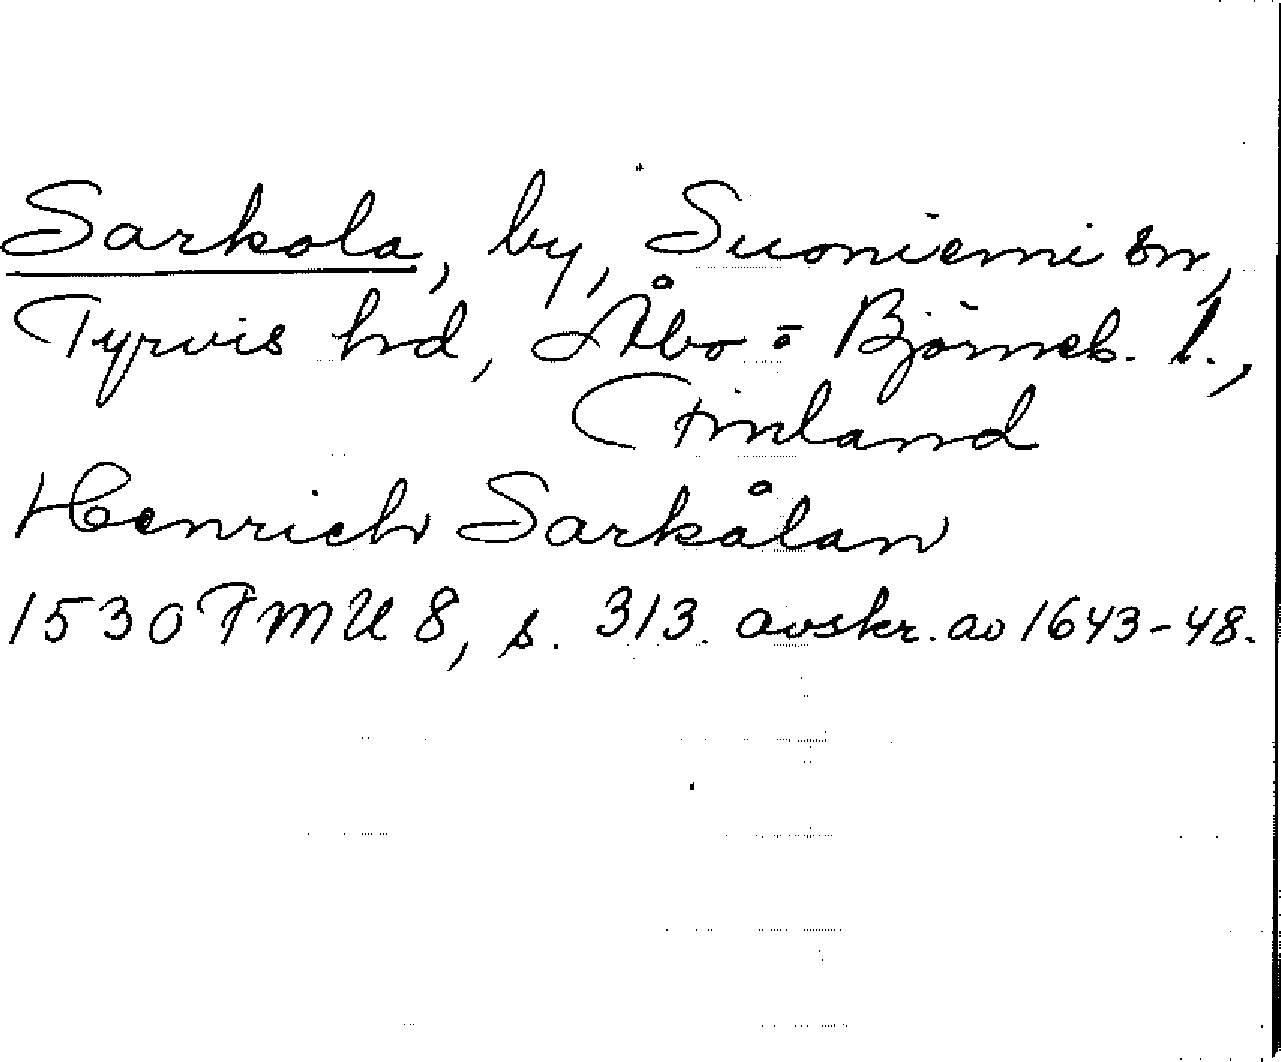 Sarkola, by, Suoniemi sn,
Tyrvis hd, Åbo- o Björneb. l.,
Finland
Henrich Sarkålan
1530 FMU 8, s. 313. avskr. av 1643-48.